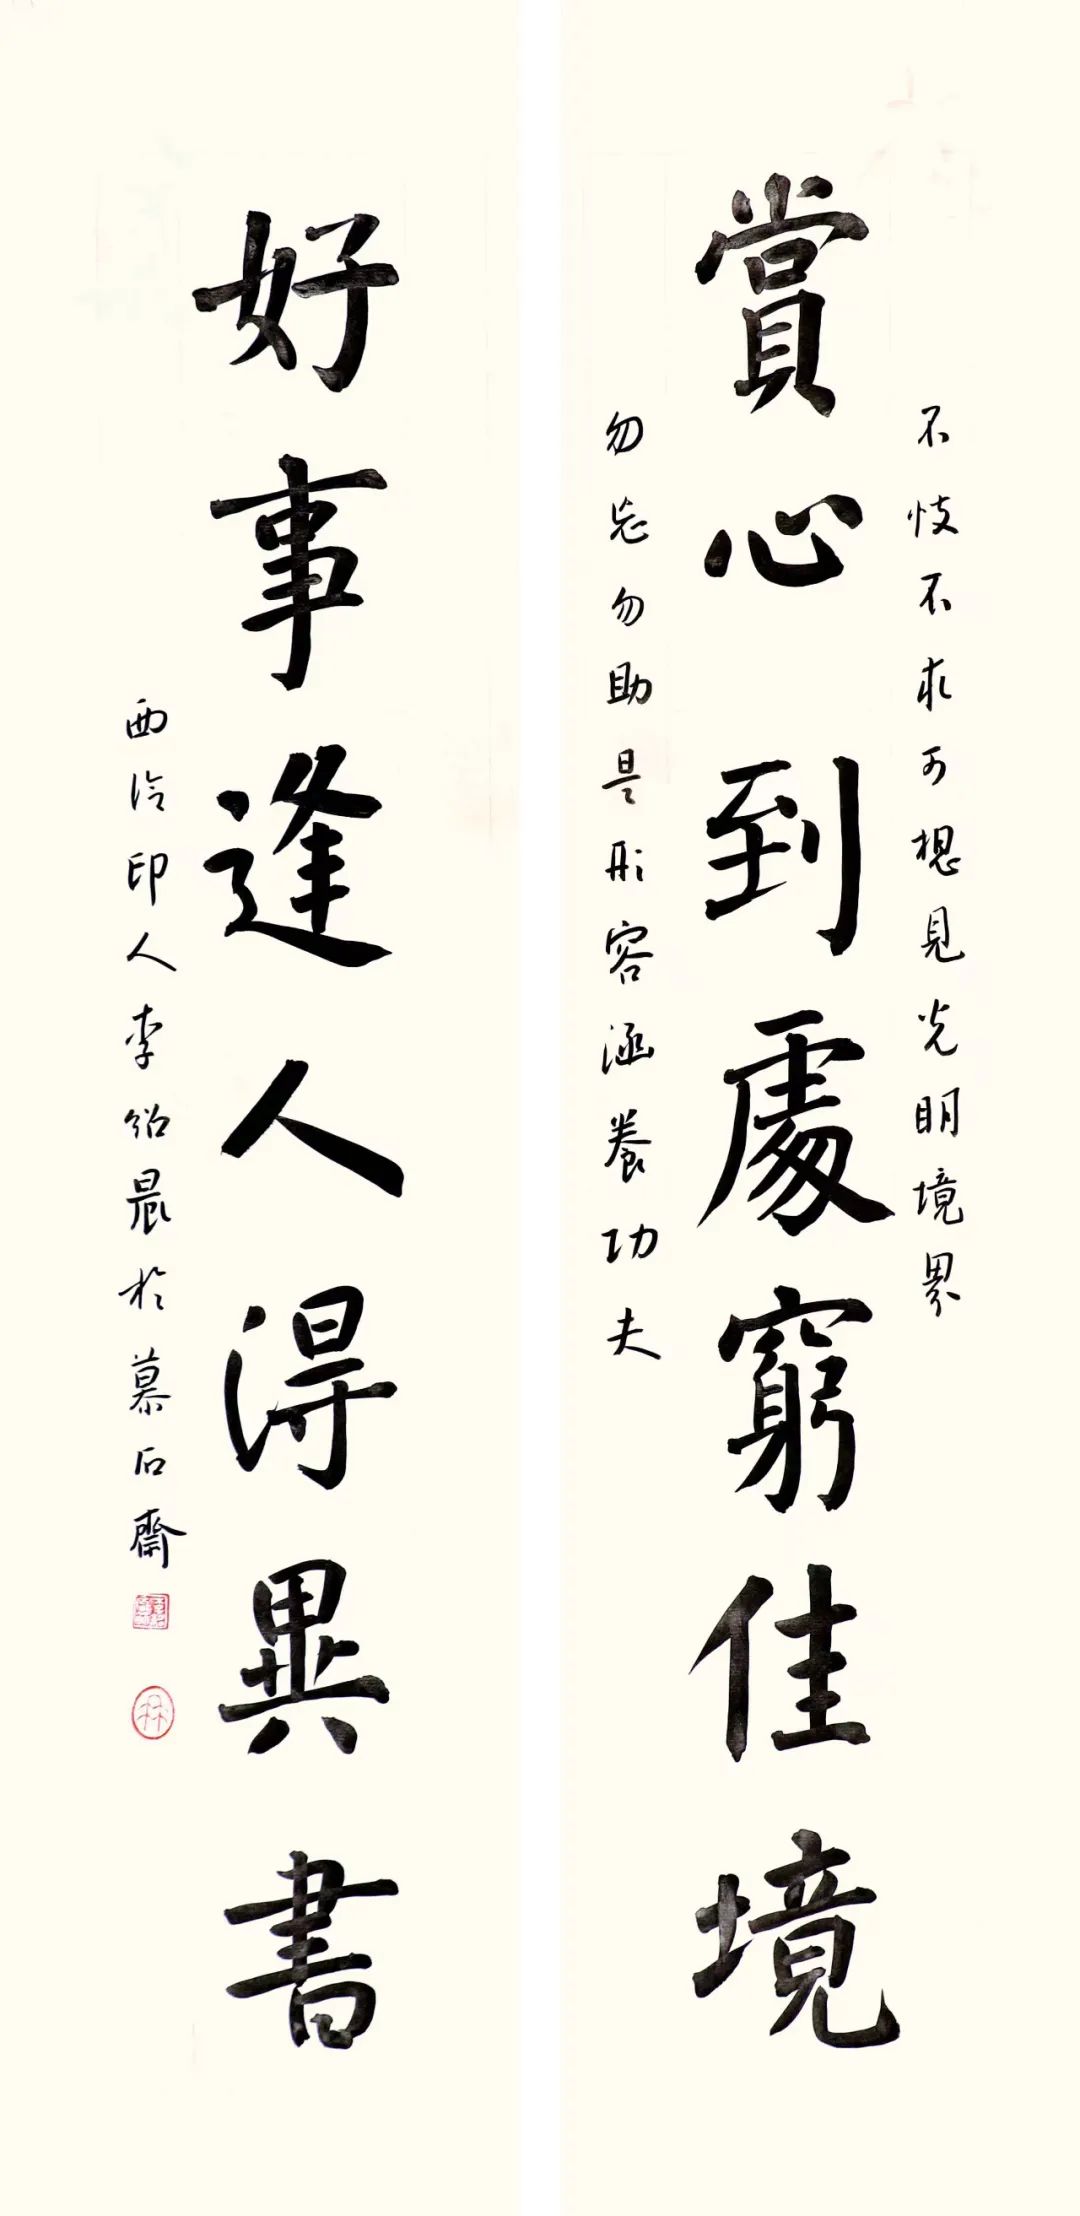 賞心到處窮佳境
不忮不求可想見光明境界
勿忘勿助是形容涵養功夫
好事逢人得異書
西泠印人李紹晨於慕石齋